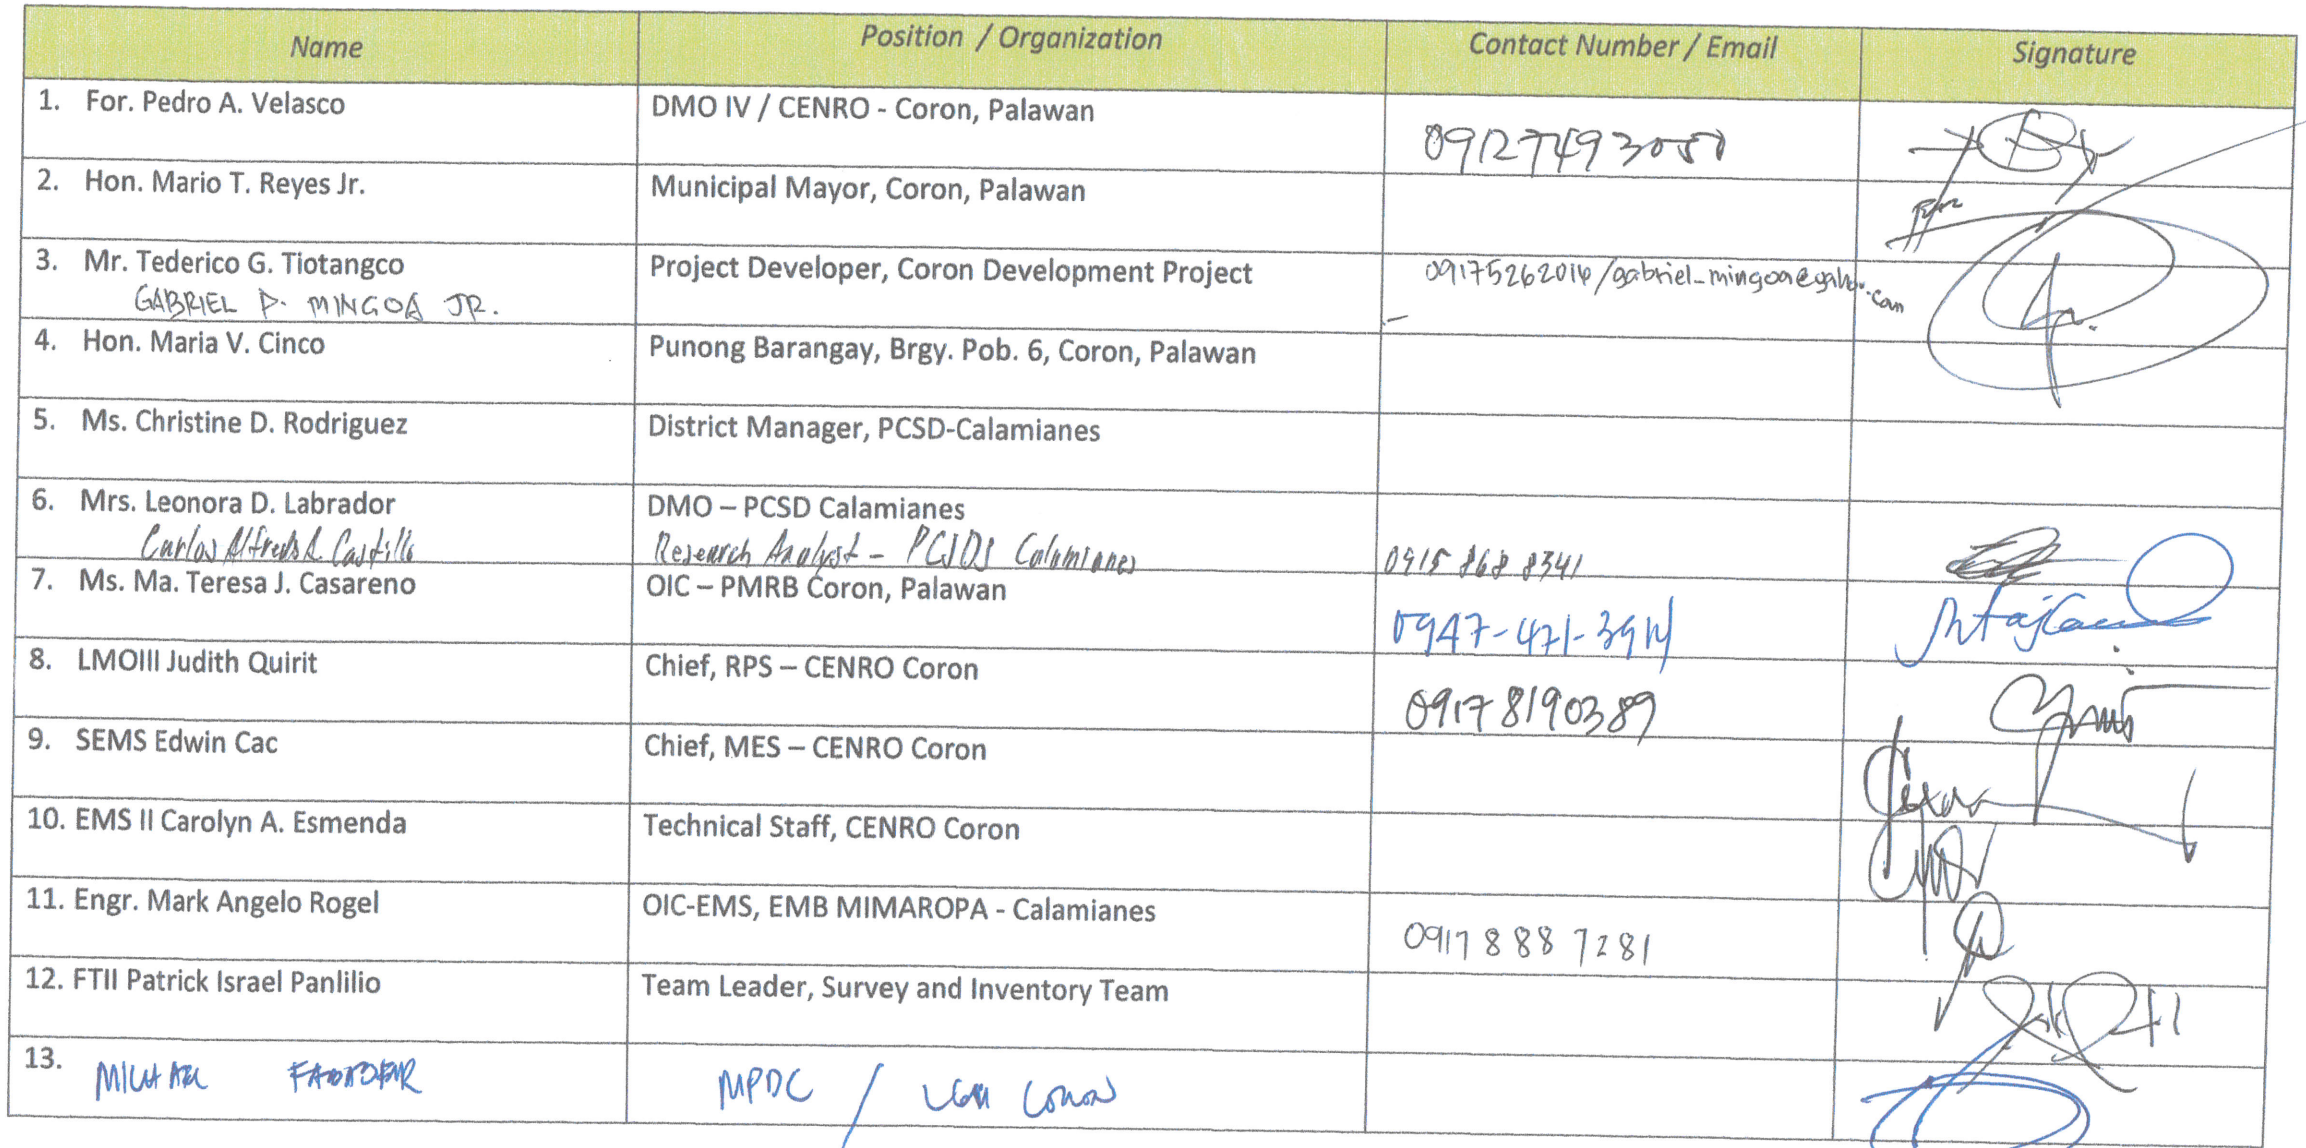 Name Position / Organization Contact Number / Email Signature
1. For. Pedro A. Velasco DMO IV / CENRO - Coron, Palawan
09127493050
2. Hon. Mario T. Reyes Jr. Municipal Mayor, Coron, Palawan
3. Mr. Tederico G. Tiotangco Project Developer, Coron Development Project 09175262014/gabriel_mingoa@yahoo.com
GABRIEL D. MINGOA JR.
4. Hon. Maria V. Cinco Punong Barangay, Brgy. Pob. 6, Coron, Palawan
5. Ms. Christine D. Rodriguez District Manager, PCSD-Calamianes
6. Mrs. Leonora D. Labrador DMO – PCSD Calamianes
Carlos Alfredo L. Castillo Research Analyst - PCSDS Calamianes 0915 868 8341
7. Ms. Ma. Teresa J. Casareno OIC – PMRB Coron, Palawan
0947-471-3914
8. LMOIII Judith Quirit Chief, RPS – CENRO Coron
09178190389
9. SEMS Edwin Cac Chief, MES – CENRO Coron
10. EMS II Carolyn A. Esmenda Technical Staff, CENRO Coron
11. Engr. Mark Angelo Rogel OIC-EMS, EMB MIMAROPA - Calamianes
0917 888 7281
12. FTII Patrick Israel Panlilio Team Leader, Survey and Inventory Team
13. MICHAEL MPDC / LGU CORON